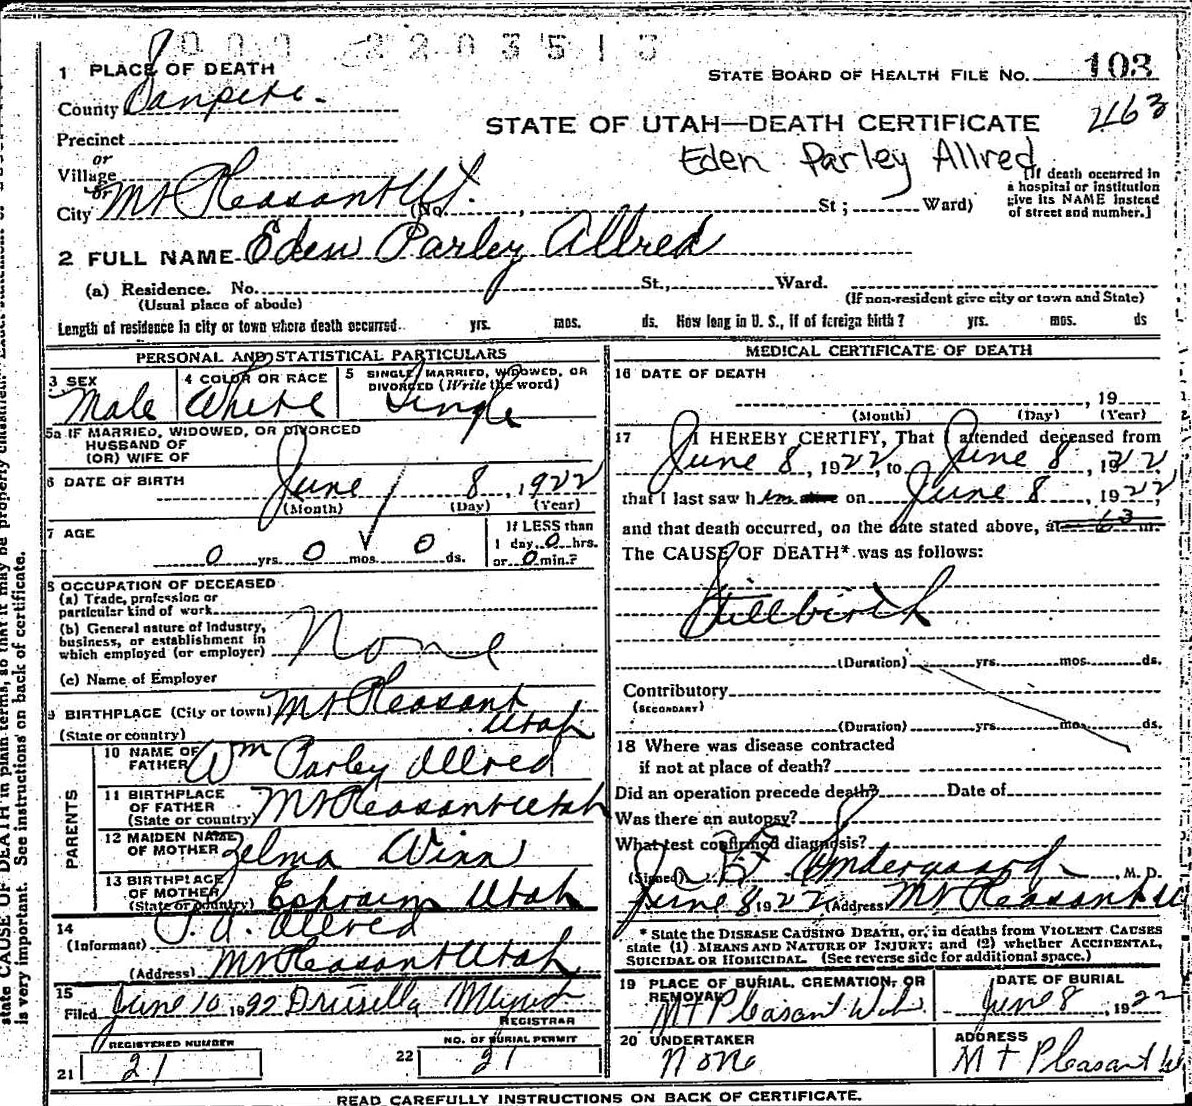 000 2203513
1 PLACE OF DEATH
STATE BOARD OF HEALTH FILE NO. 103
County Sanpete.
2163
STATE OF UTAH—DEATH CERTIFICATE
Precinct
Eden Parley Allred
or
Village
or
City Mt Pleasant Ut. (No. , St; Ward)
(If death occurred in
a hospital or institution
give its NAME instead
of street and number.]
2 FULL NAME Eden Parley Allred
(a) Residence. No. St., Ward.
(Usual place of abode)
(If non-resident give city or town and State)
Length of residence in city or town where death occurred yrs. mos. ds. How long in U. S., if of foreign birth? yrs. mos. ds
PERSONAL AND STATISTICAL PARTICULARS
3 SEX
Male
4 COLOR OR RACE
White
5 SINGLE, MARRIED, WIDOWED, OR
DIVORCED (Write the word)
Single
5a IF MARRIED, WIDOWED, OR DIVORCED
HUSBAND OF
(OR) WIFE OF
6 DATE OF BIRTH
June 8, 1922
(Month) (Day) (Year)
7 AGE
0 yrs. 0 mos. 0 ds.
If LESS than
1 day 0 hrs.
or 0 min.?
8 OCCUPATION OF DECEASED
(a) Trade, profession or
particular kind of work
(b) General nature of industry,
business, or establishment in
which employed (or employer)
None
(c) Name of Employer
9 BIRTHPLACE (City or town) Mt Pleasant
(State or country) Utah
PARENTS
10 NAME OF
FATHER Wm Parley Allred
11 BIRTHPLACE
OF FATHER
(State or country) Mt Pleasant Utah
12 MAIDEN NAME
OF MOTHER Zelma Winn
13 BIRTHPLACE
OF MOTHER
(State or country) Ephraim Utah
14
(Informant) Allred
(Address) Mt Pleasant Utah
15
Filed June 10 1922 Drusilla
REGISTRAR
REGISTERED NUMBER
21 21
NO. OF BURIAL PERMIT
22 21
MEDICAL CERTIFICATE OF DEATH
16 DATE OF DEATH
, 19
(Month) (Day) (Year)
17 I HEREBY CERTIFY, That I attended deceased from
June 8, 1922, to June 8, 1922
that I last saw him alive on June 8, 1922,
and that death occurred, on the date stated above, at m.
The CAUSE OF DEATH* was as follows:
Stillbirth
(Duration) yrs. mos. ds.
Contributory
(SECONDARY)
(Duration) yrs. mo. ds.
18 Where was disease contracted
if not at place of death?
Did an operation precede death? Date of
Was there an autopsy?
What test confirmed diagnosis?
(Signed) , M. D.
June 8 1922 (Address) Mt Pleasant
* State the DISEASE CAUSING DEATH, or, in deaths from VIOLENT CAUSES
state (1) MEANS AND NATURE OF INJURY; and (2) whether ACCIDENTAL,
SUICIDAL OR HOMICIDAL. (See reverse side for additional space.)
19 PLACE OF BURIAL, CREMATION, OR
REMOVAL
Mt Pleasant
DATE OF BURIAL
June 8, 1922
20 UNDERTAKER
None
ADDRESS
Mt Pleasant
READ CAREFULLY INSTRUCTIONS ON BACK OF CERTIFICATE.
state CAUSE OF DEATH in plain terms, so that it may be properly classified.
is very important. See instructions on back of certificate.